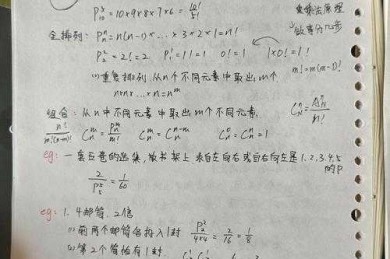 P₁₀⁵ = 10×9×8×7×6 = 10!/5!
全排列: Pₙⁿ = n(n-1)⋯×3×2×1 = n!
P₂² = 2! = 2 P₁¹ = 1! = 1 0! = 1 1×0! = 1!
m! = m(m-1)!
⑴重复排列: 从n个不同元素中取出m个
n×n×⋯×n = nᵐ
组合: 从n中不同元素中取出m个不同元素.
n!/m!(n-m)! Cₙᵐ = Pₙᵐ/m! Cₙᵐ = Cₙⁿ⁻ᵐ Cₙ⁰ = Cₙⁿ = 1
eg: 一套五卷的选集, 放书架上 求自左向右或自右向左是1.2.3.4.5的P
2/P₅⁵ = 1/60
eg: 1. 4邮筒, 2信
⑴前两个邮筒各投入1封 P₂²/4×4 = 2/16 = 1/8
⑵第2个筒恰有1封